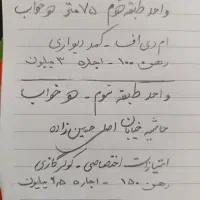 واحد طبقه سوم ۷۵ متر دو خواب
ام دی اف - کمد دیواری
رهن ۱۰۰ - اجاره ۳ میلیون
واحد طبقه سوم - دو خواب
حاشیه خیابان اصلی حسین زاده
امتیازات اختصاصی - کولر گازی
رهن ۱۵۰ - اجاره ۶/۵ میلیون